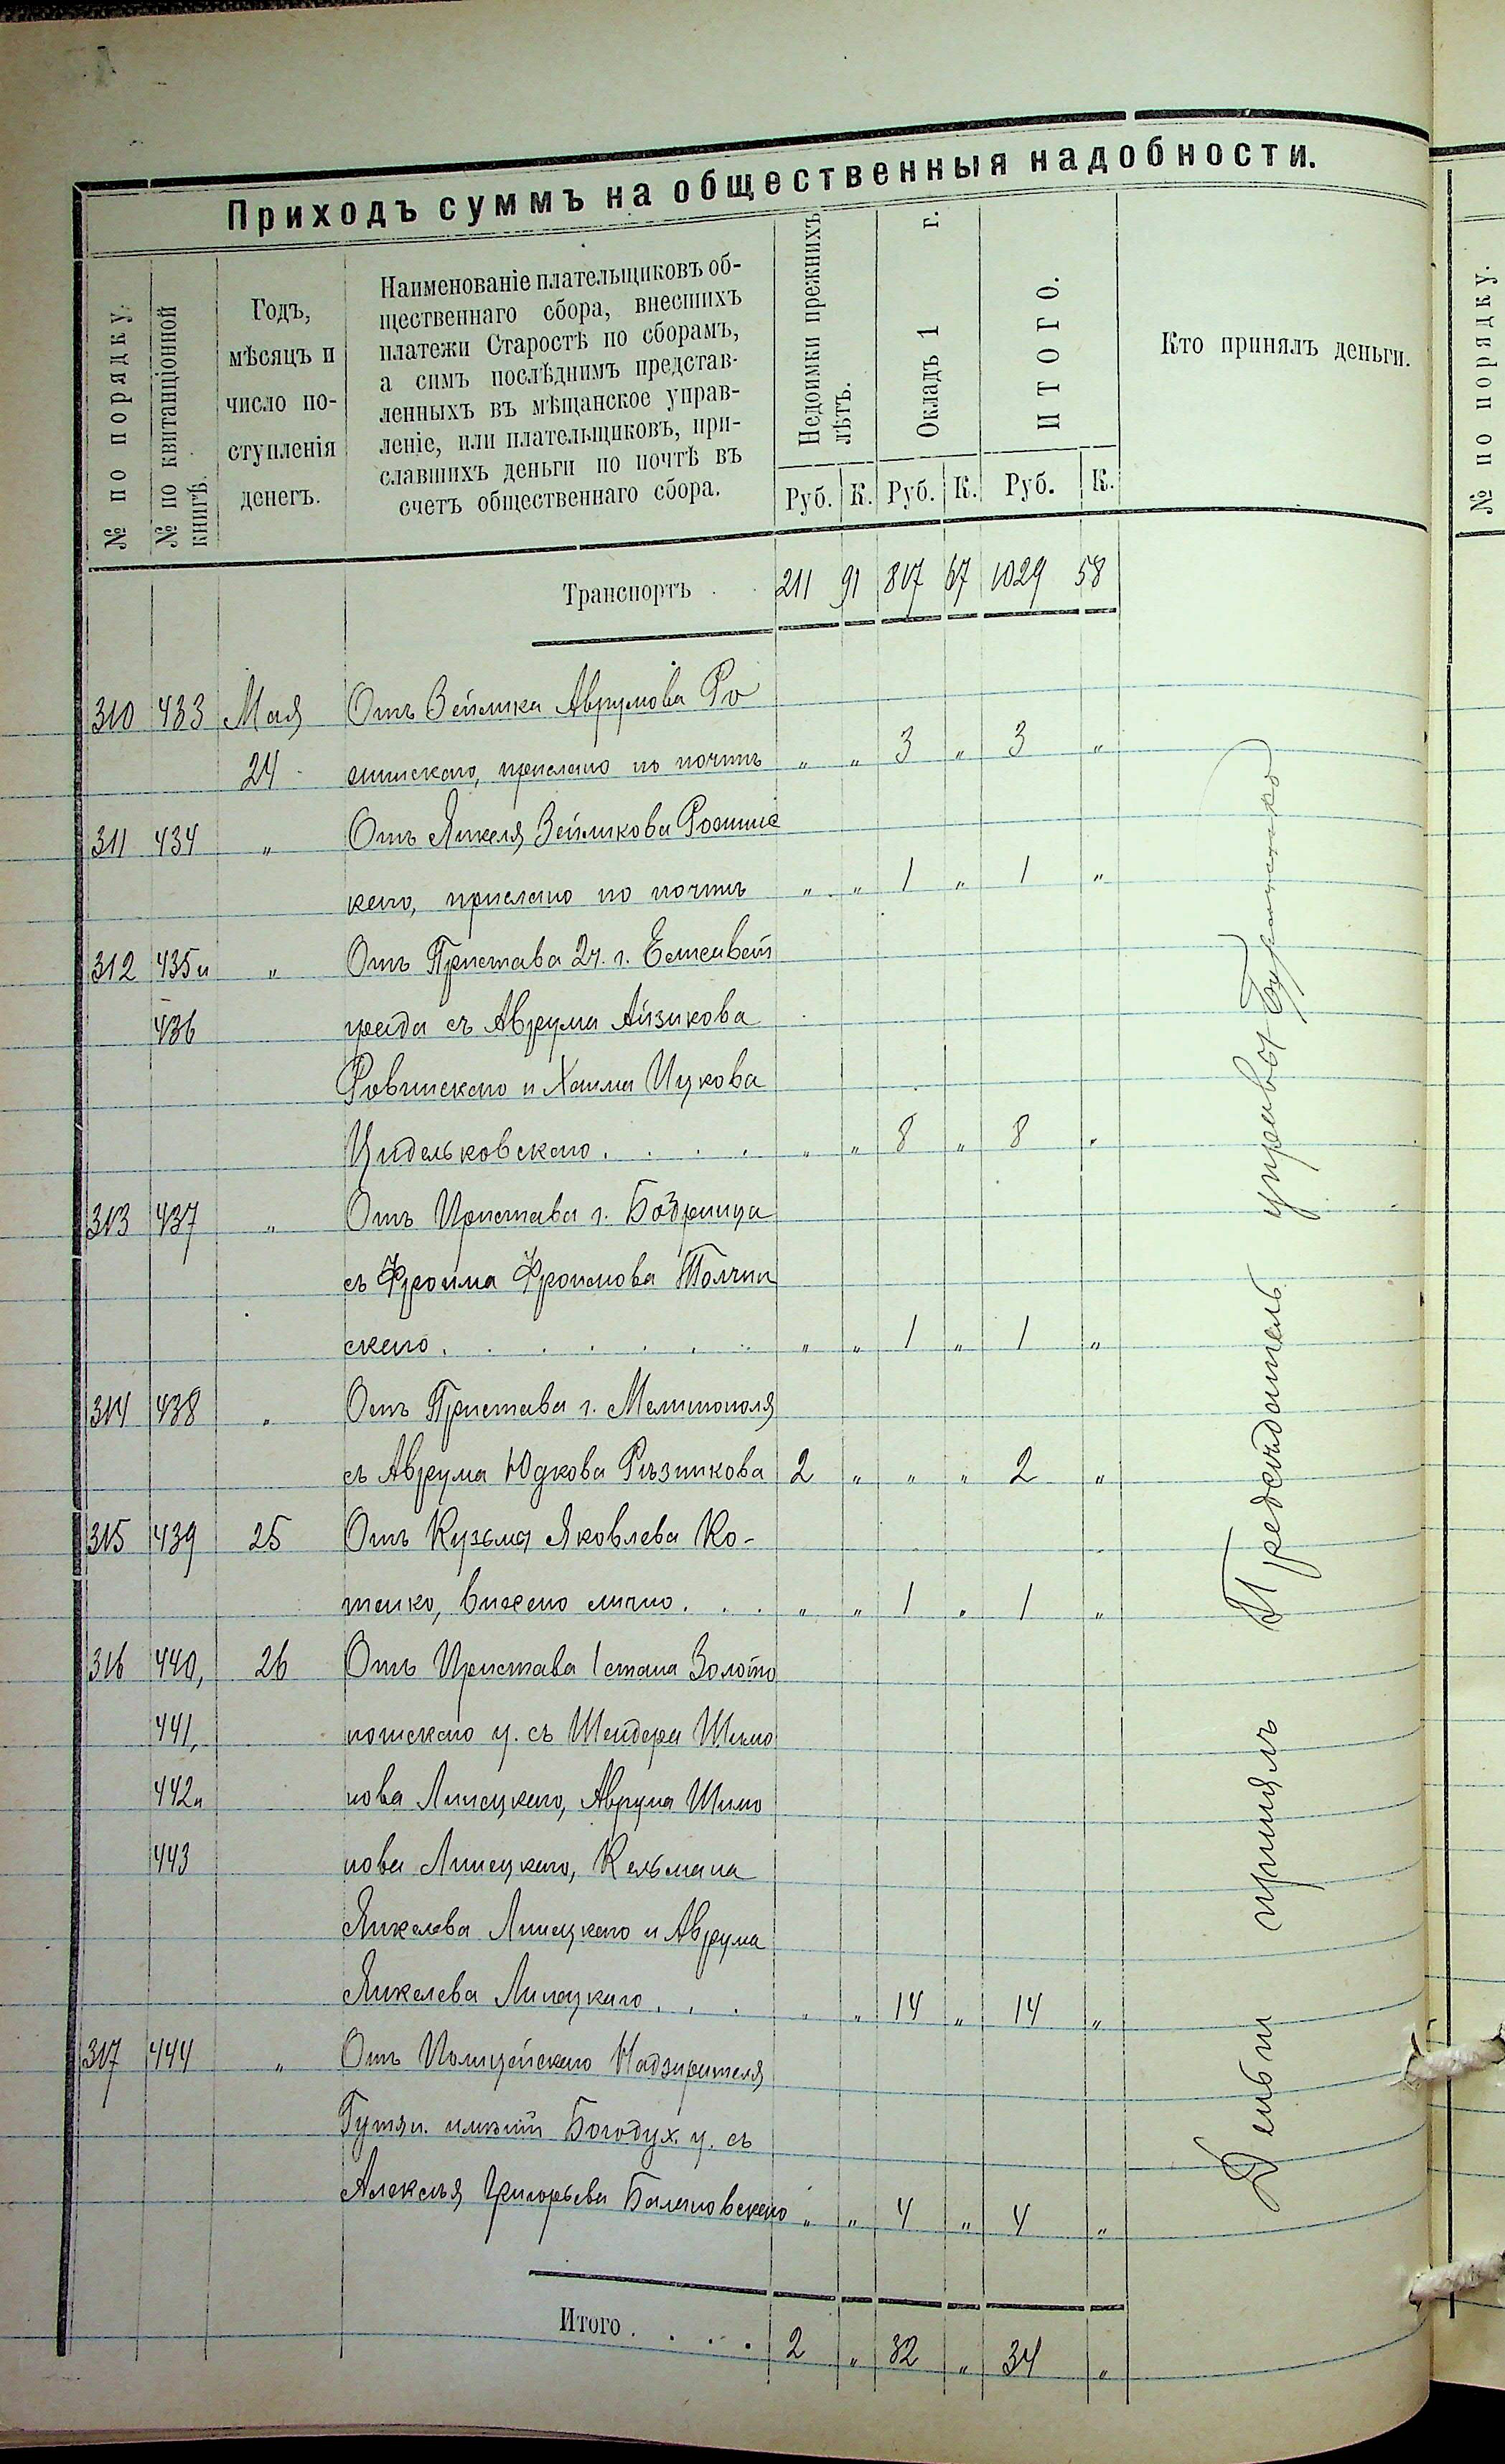 Приходъ суммъ на общественныя надобности.
№ по порядку.
№ по квитанціонной книгѣ.
Годъ,
мѣсяцъ и
число по-
ступленія
денегъ.
Наименованіе плательщиковъ об-
щественнаго сбора, внесшихъ
платежи Старостѣ по сборамъ,
а симъ послѣднимъ представ-
ленныхъ въ мѣщанское управ-
леніе, или плательщиковъ, при-
славшихъ деньги по почтѣ въ
счетъ общественнаго сбора.
Недоимки прежнихъ лѣтъ.
Окладъ 1 г.
ИТОГО.
Кто принялъ деньги.
Руб. К. Руб. К. Руб. К.
Транспортъ . . 211 91 817 67 1029 58
310 433 Мая Отъ Зейлика Аврумова Ро
24 прислано по почтѣ „ „ 3 „ 3 „
311 434 „ Отъ Янкеля Зейликова
каго, прислано по почтѣ „ „ 1 „ 1 „
312 435 и „ Отъ Пристава 2 ч. г. Елисавет
436 града съ Аврума Айзикова
Ровинскаго и Хаима Ицкова
Цидельковскаго. . . . . „ „ 8 „ 8 „
313 437 „ Отъ Пристава г. Бобринца
съ Фроима Фроимова Толчин
скаго. . . . . . . „ „ 1 „ 1 „
314 438 „ Отъ Пристава г. Мелитополя
съ Аврума Юдкова Рѣзникова 2 „ „ „ 2 „
315 439 25 Отъ Кузьмы Яковлева Ко-
тенко, внесено лично. . . „ „ 1 „ 1 „
316 440, 26 Отъ Пристава 1 стана Золото
441, ношскаго у. съ Шендера Шимо
442 и нова Липецкаго, Аврума Шимо
443 нова Липецкаго, Кельмана
Янкелева Липецкаго и Аврума
Янкелева Липецкаго. . . „ „ 14 „ 14 „
317 444 „ Отъ Полицейскаго Надзирателя
Гутян. имѣній Богодух. у. съ
Алексѣя Григорьева Балановскаго „ „ 4 „ 4 „
Итого. . . . 2 „ 32 „ 34 „
Деньги принялъ Предсѣдатель управы
№ по порядку.